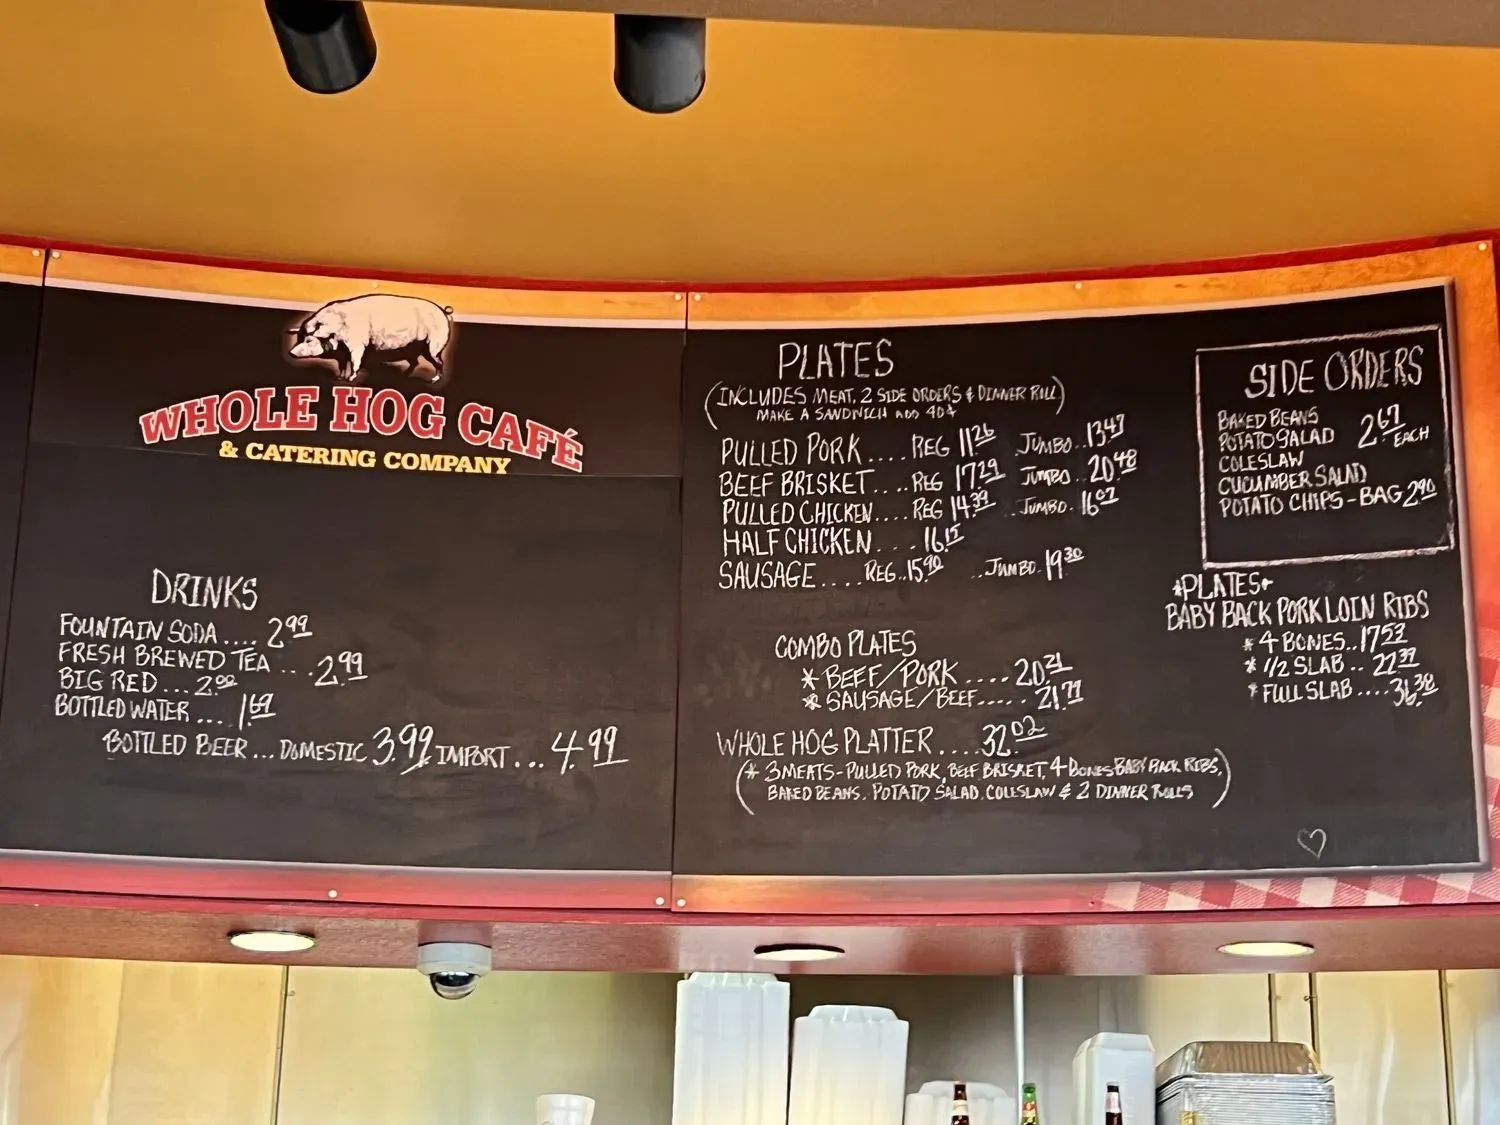 WHOLE HOG CAFÉ
& CATERING COMPANY
DRINKS
FOUNTAIN SODA.... 2.99
FRESH BREWED TEA... 2.99
BIG RED... 2.00
BOTTLED WATER.... 1.69
BOTTLED BEER... DOMESTIC 3.99 IMPORT... 4.99
PLATES
(INCLUDES MEAT, 2 SIDE ORDERS & DINNER ROLL)
MAKE A SANDWICH ADD 40¢
PULLED PORK.... REG 11.26 JUMBO..13.47
BEEF BRISKET....REG 17.29 JUMBO..20.48
PULLED CHICKEN....REG 14.39 ..JUMBO.16.07
HALF CHICKEN....16.15
SAUSAGE.... REG..15.90 ..JUMBO.19.30
COMBO PLATES
* BEEF/PORK....20.21
* SAUSAGE/BEEF.....21.77
WHOLE HOG PLATTER....32.02
(* 3 MEATS-PULLED PORK, BEEF BRISKET, 4 BONES BABY BACK RIBS,
BAKED BEANS, POTATO SALAD, COLESLAW & 2 DINNER ROLLS)
SIDE ORDERS
BAKED BEANS
POTATO SALAD 2.67 EACH
COLESLAW
CUCUMBER SALAD
POTATO CHIPS-BAG 2.90
*PLATES*
BABY BACK PORK LOIN RIBS
* 4 BONES..17.53
* 1/2 SLAB.. 22.39
* FULL SLAB....36.38